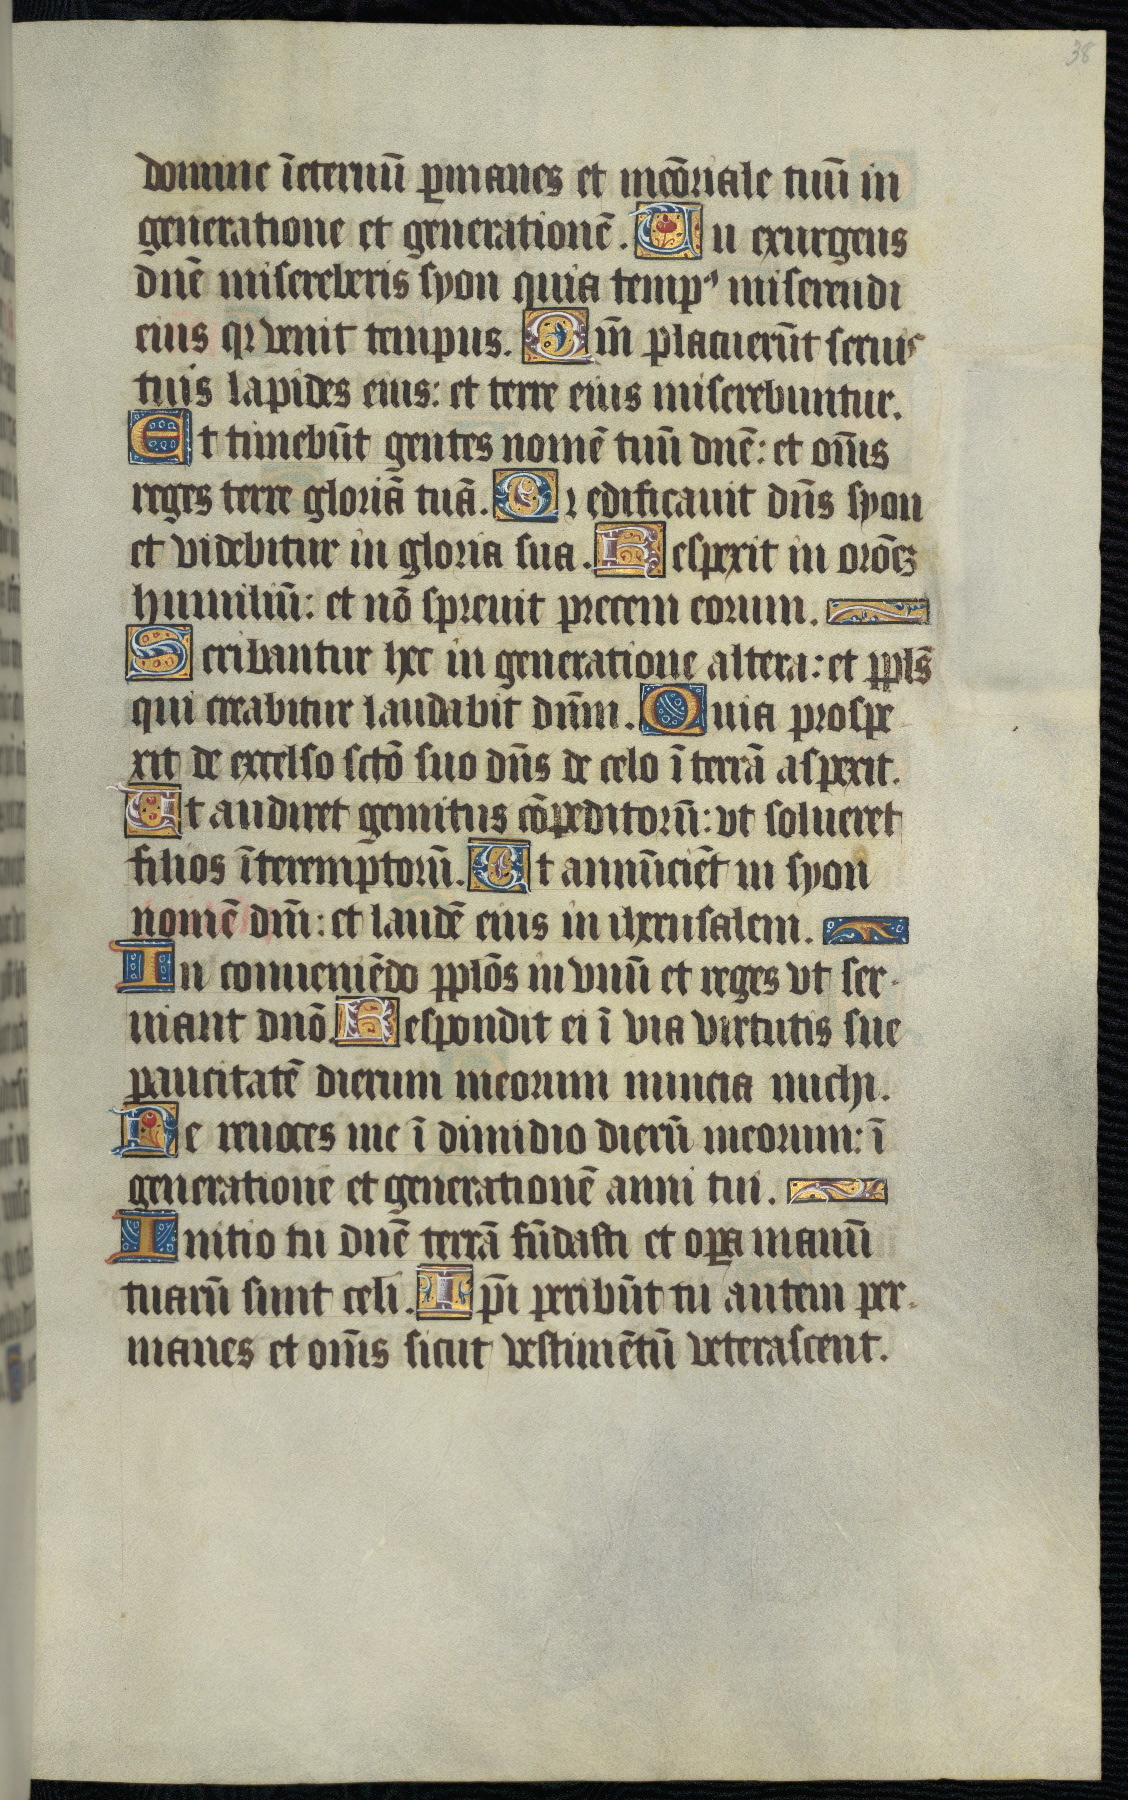 38
domine īeternū ꝑmanes et meōriale tuū in
generatione et generationē. Tu exurgens
dn̄e misereberis syon quia tempꝰ miserendi
eius qꝛ venit tempus. Qm̄ placuerūt seruis
tuis lapides eius: et terre eius miserebuntur.
Et timebūt gentes nomē tuū dn̄e: et om̄s
reges terre gloriā tuā. Qꝛ edificauit dn̄s syon
et videbitur in gloria sua. Respexit in orōēꝫ
humiliū: et nō spreuit precem eorum.
Scribantur hec in generatione altera: et ppl̄s
qui creabitur laudabit dn̄m. Quia prospe
xit de excelso sctō suo dn̄s de celo ī terrā aspexit.
Ut audiret gemitus cōpeditorū: vt solueret
filios īteremptorū. Ut annūciēt in syon
nomē dn̄i: et laudē eius in iherusalem.
In conueniēdo pplōs in vnū et reges vt ser-
uiant dnō. Respondit ei ī via virtutis sue
paucitatē dierum meorum nuncia michi.
Ne reuoces me ī dimidio dierū meorum: ī
generatione et generationē anni tui.
Initio tu dn̄e terrā fūdasti et oꝑa manuū
tuarū sunt celi. Ip̄i peribūt tu autem per-
manes et om̄s sicut vestimētū veterascent.